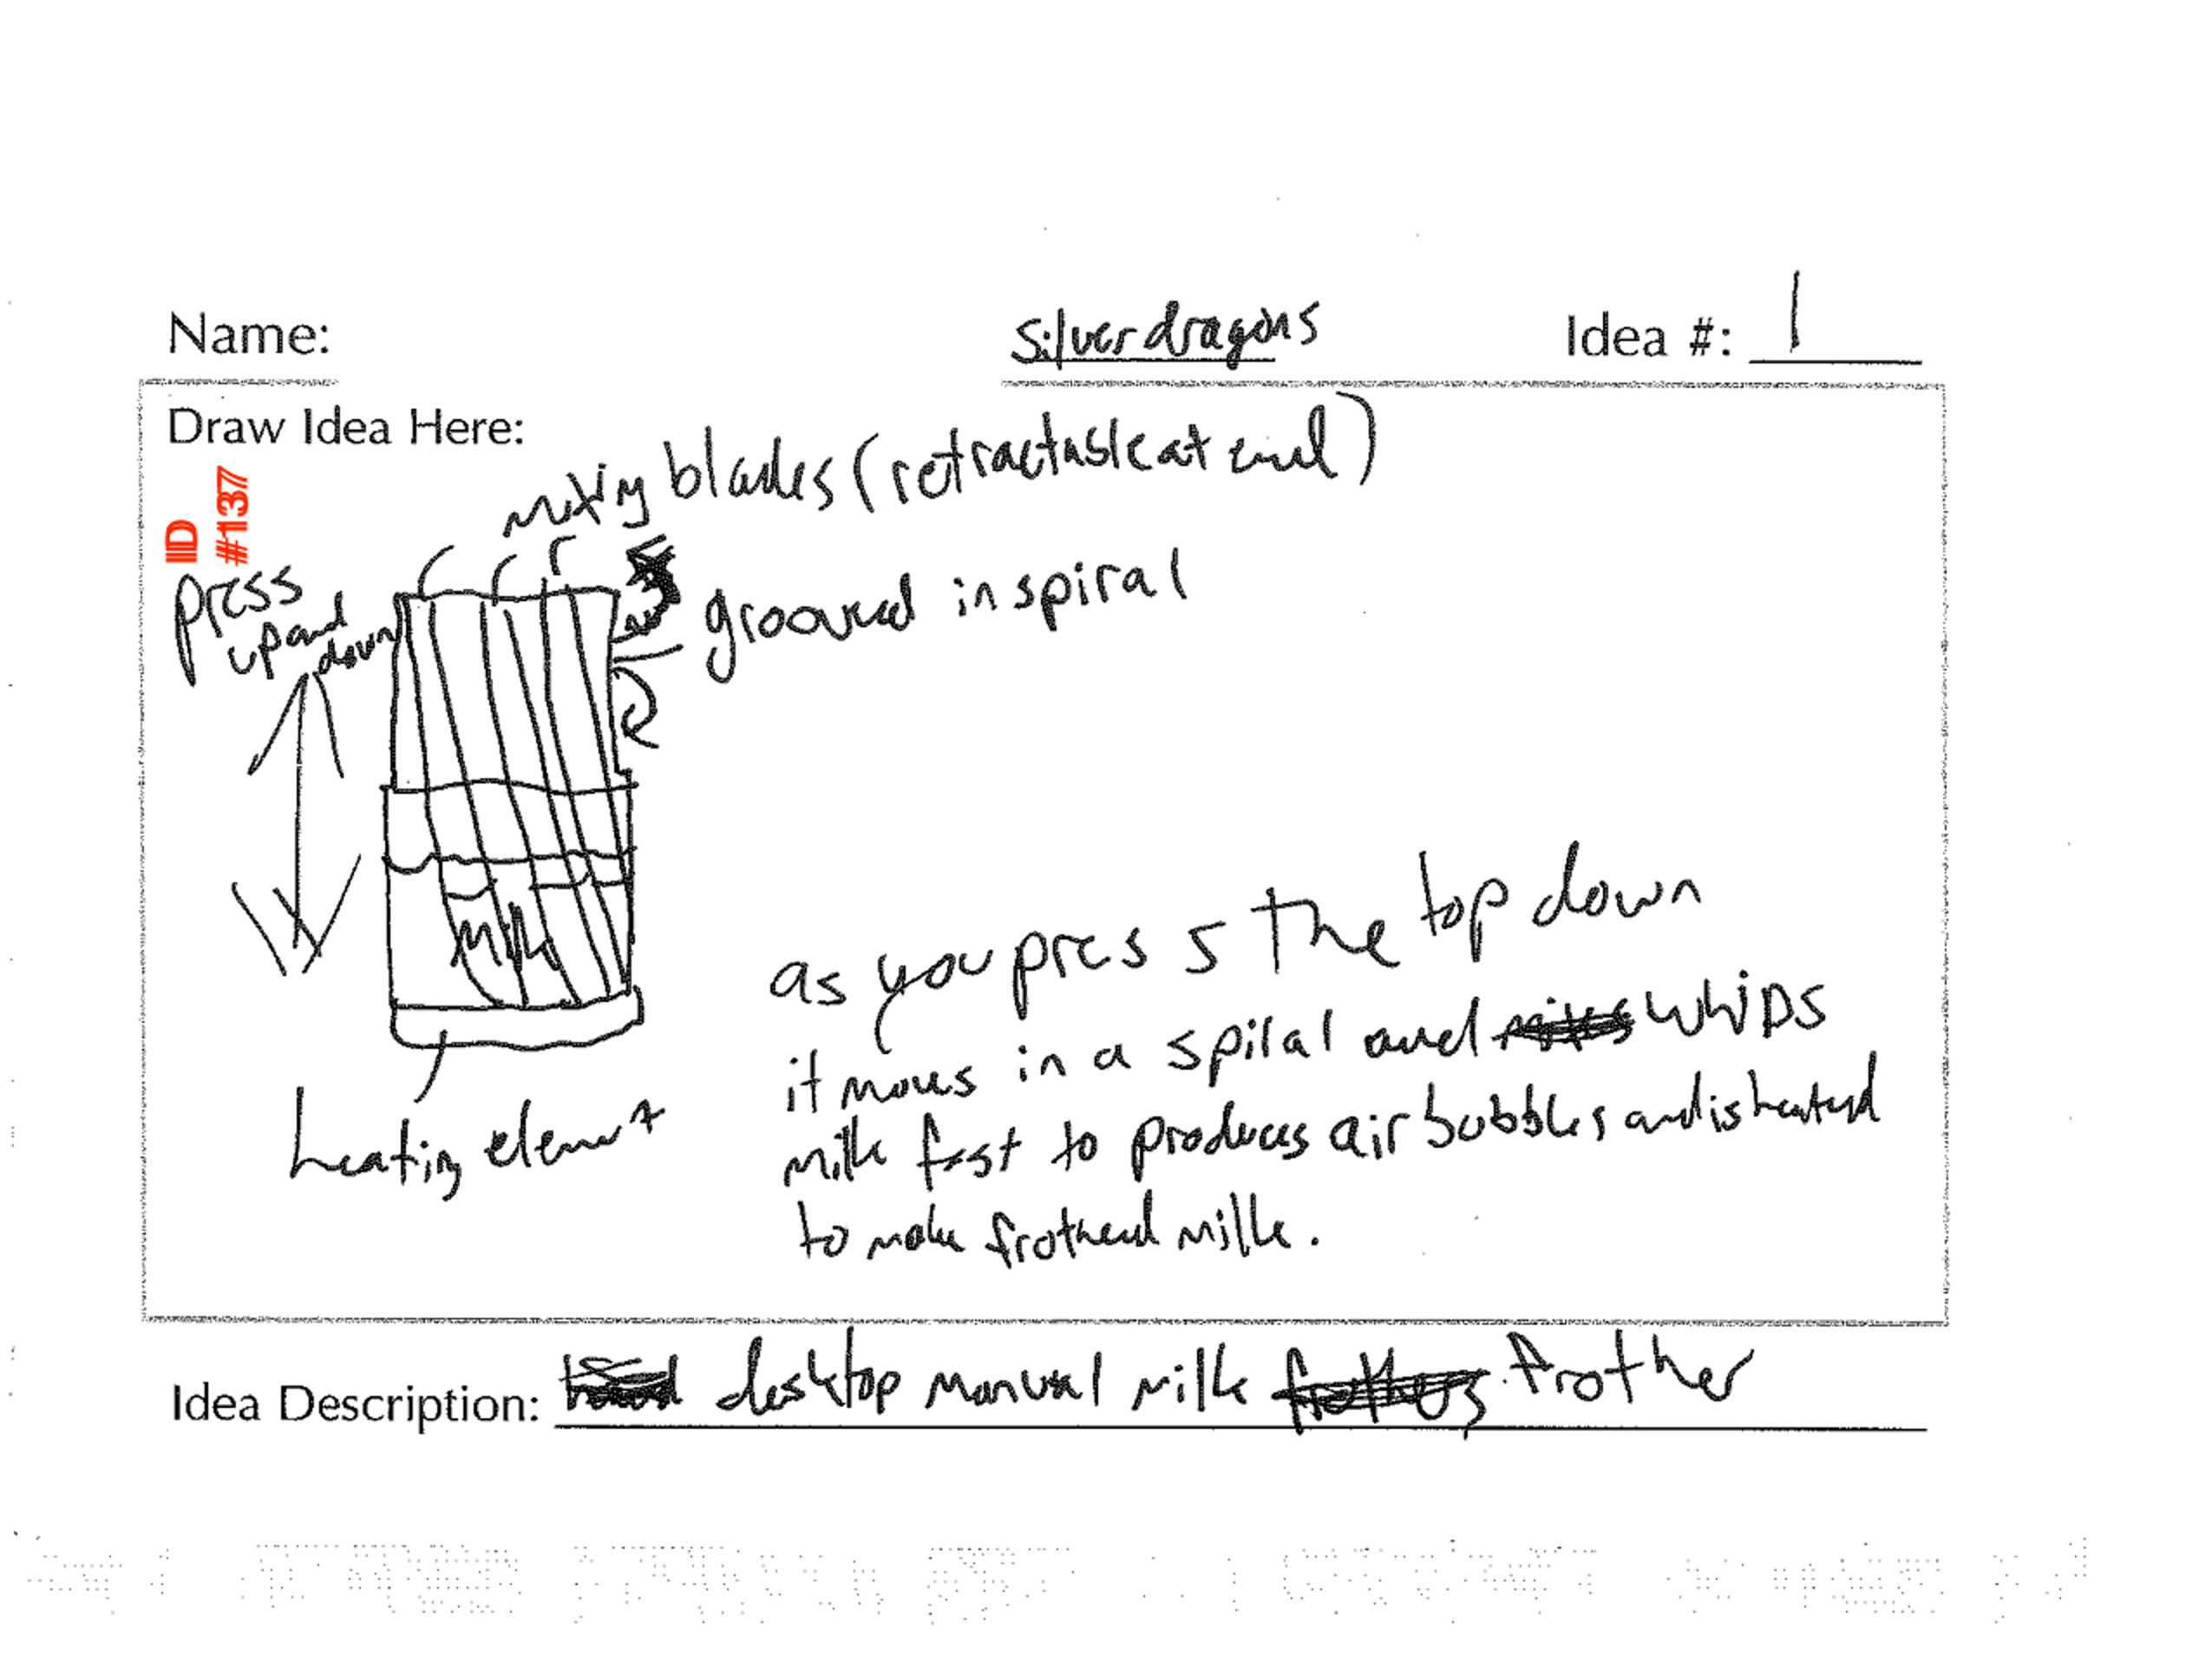 Name: Silverdragons Idea #: 1
Draw Idea Here:
ID
#137
mixing blades (retractable at end)
press
up and
down
grooved in spiral
Milk
heating element
as you press the top down
it moves in a spiral and whips
milk fast to produces air bubbles and is heated
to make frothed milk.
Idea Description: desktop manual milk frother